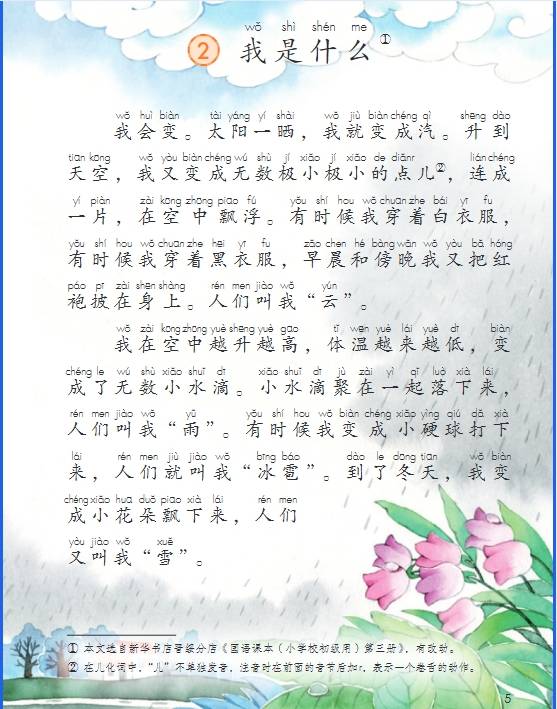 wǒ shì shén me
2 我是什么①
wǒ huì biàn tài yáng yí shài wǒ jiù biàn chéng qì shēng dào
我会变。太阳一晒，我就变成汽。升到
tiān kōng wǒ yòu biàn chéng wú shù jí xiǎo jí xiǎo de diǎnr lián chéng
天空，我又变成无数极小极小的点儿②，连成
yí piàn zài kōng zhōng piāo fú yǒu shí hou wǒ chuān zhe bái yī fu
一片，在空中飘浮。有时候我穿着白衣服，
yǒu shí hou wǒ chuān zhe hēi yī fu zǎo chen hé bàng wǎn wǒ yòu bǎ hóng
有时候我穿着黑衣服，早晨和傍晚我又把红
páo pī zài shēn shàng rén men jiào wǒ yún
袍披在身上。人们叫我“云”。
wǒ zài kōng zhōng yuè shēng yuè gāo tǐ wēn yuè lái yuè dī biàn
我在空中越升越高，体温越来越低，变
chéng le wú shù xiǎo shuǐ dī xiǎo shuǐ dī jù zài yì qǐ luò xià lái
成了无数小水滴。小水滴聚在一起落下来，
rén men jiào wǒ yǔ yǒu shí hou wǒ biàn chéng xiǎo yìng qiú dǎ xià
人们叫我“雨”。有时候我变成小硬球打下
lái rén men jiù jiào wǒ bīng báo dào le dōng tiān wǒ biàn
来，人们就叫我“冰雹”。到了冬天，我变
chéng xiǎo huā duǒ piāo xià lái rén men
成小花朵飘下来，人们
yòu jiào wǒ xuě
又叫我“雪”。
① 本文选自新华书店晋绥分店《国语课本（小学校初级用）第三册》，有改动。
② 在儿化词中，“儿”不单独发音，注音时在前面的音节后加r，表示一个卷舌的动作。
5